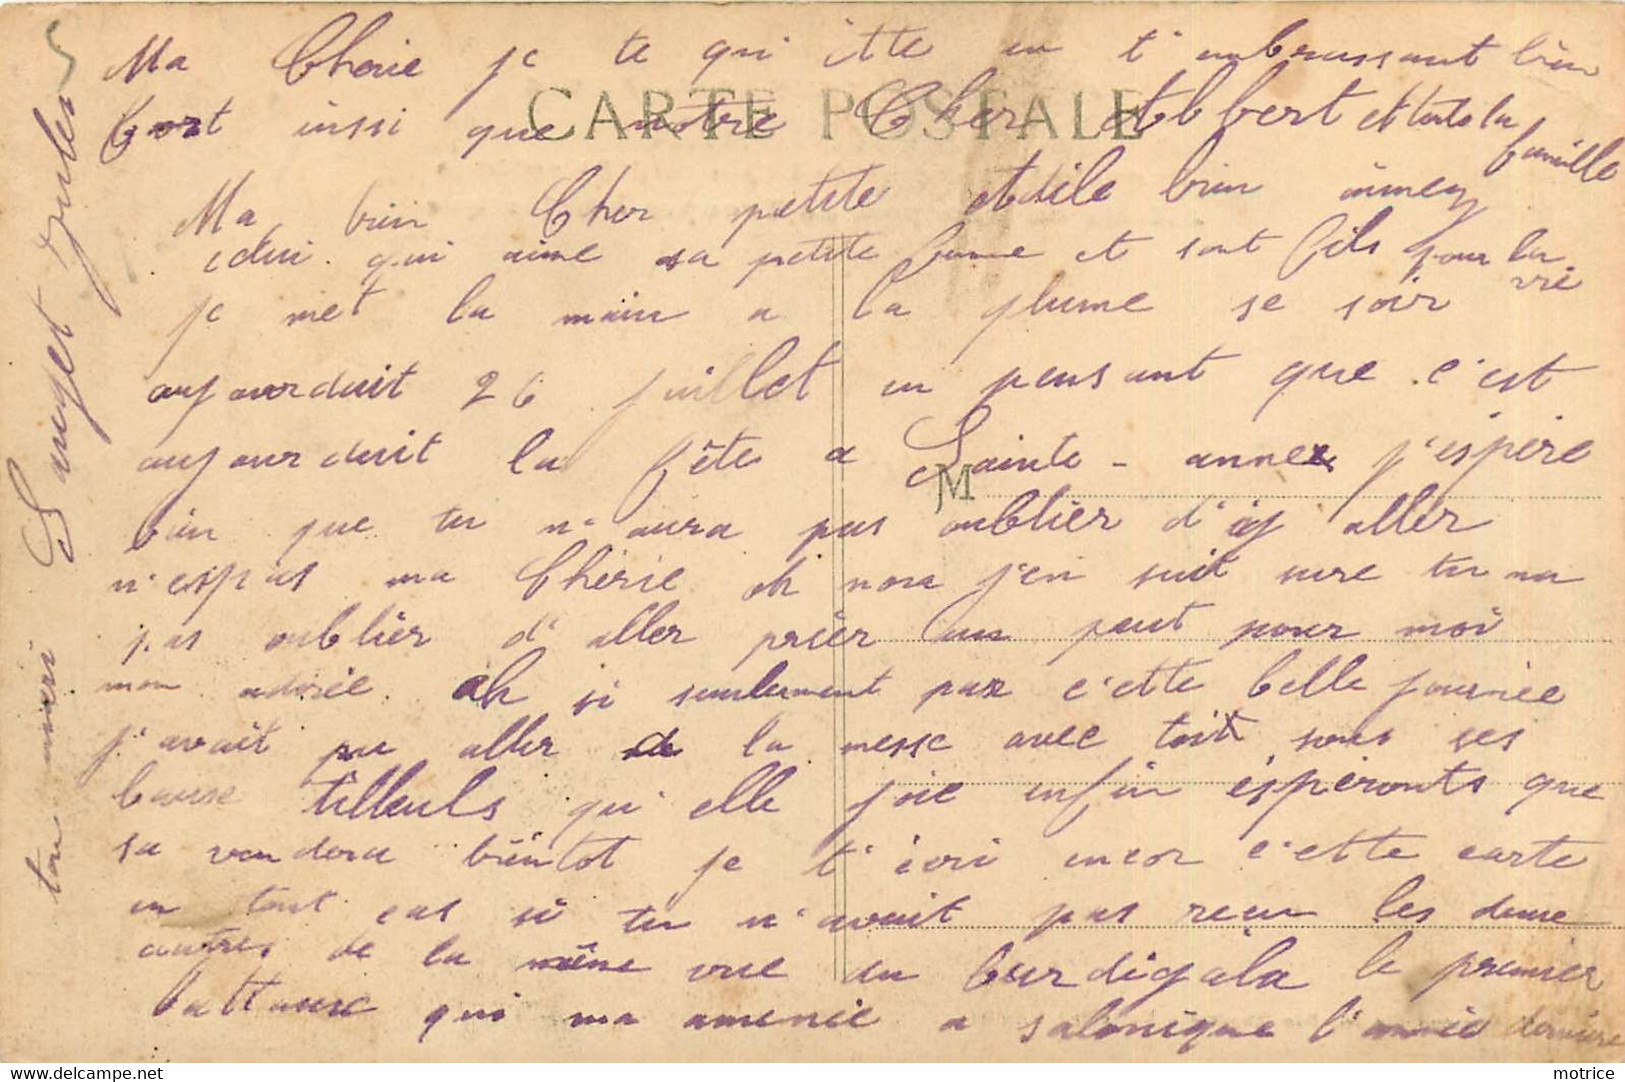 Ma Cherie je te qui itte en t'embrassant bien
fort inssi que notre Cher Albert et toute la
famille
CARTE POSTALE
Ma bien Cher petite Odile bien aimey
celui qui aime sa petite famme et sont fils pour la
vie
je met la main a la plume se soir
aujourduit 26 juillet en pensant que c'est
aujourduit la fête a Sainte-anne j'espère
M
bien que tu n'aura pas oublier d'y aller
n'espas ma Chérie oh non j'en suit sure tu na
pas oublier d'aller prier un peut pour moi
mon adorée ah si seulement par c'ette belle journée
j'avait pu aller a la messe avec toit sous ses
beaux tilleuls qu'elle joie enfin éspéronts que
sa viendera bientot je t'écri encor c'ette carte
en tout cas si tu n'avait pas recu les deux
autres de la même vue du burdigala le premier
batteaux qui ma amenée a salonique l'année derniere
ton mari Sauget Jules
motrice